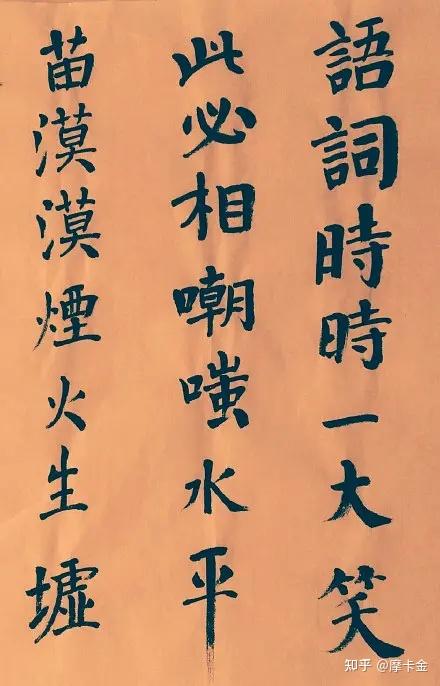 語詞時時一大笑
此必相嘲嗤水平
苗漠漠煙火生墟
知乎 @摩卡金